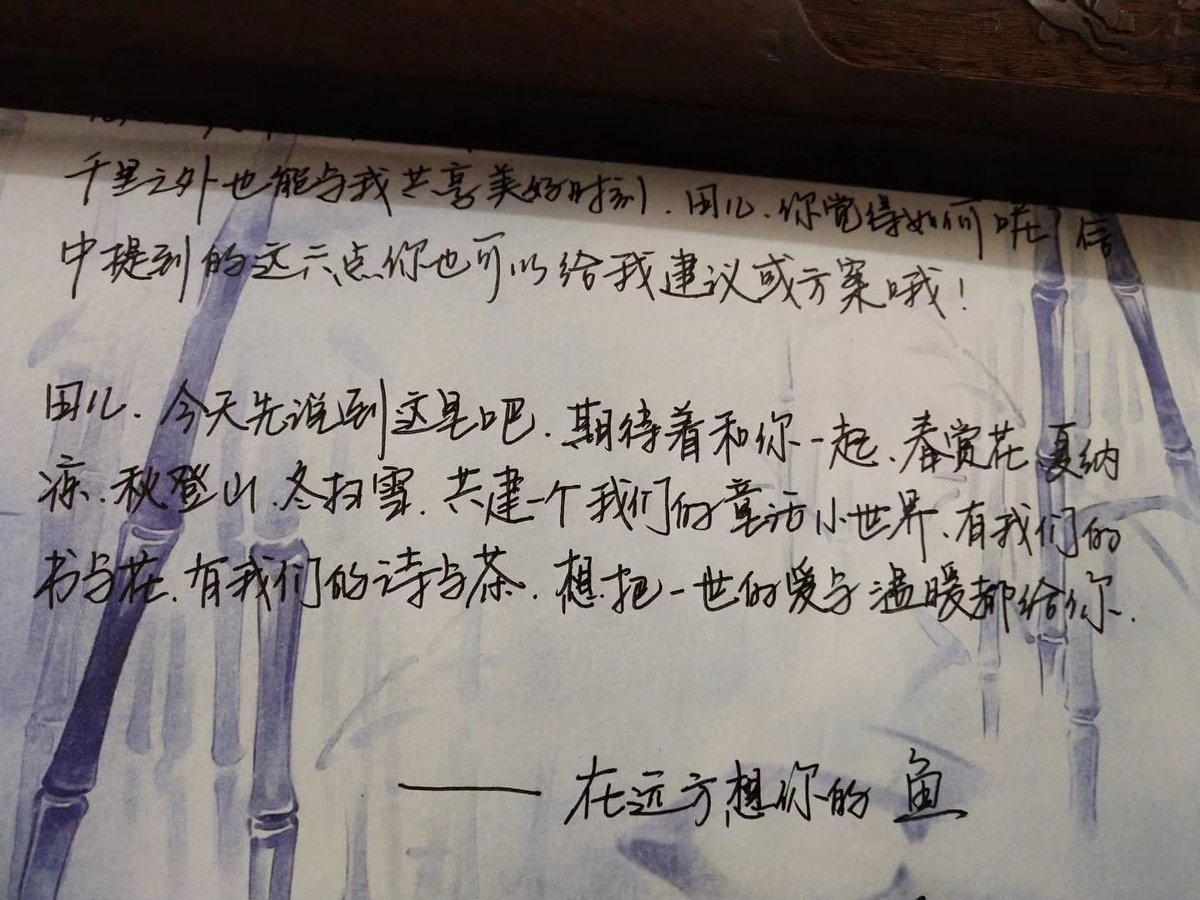 千里之外也能与我共享美好时刻.田儿.你觉得如何呢?信
中提到的这六点你也可以给我建议或方案哦!
田儿.今天先说到这里吧.期待着和你一起、春赏花 夏纳
凉.秋登山.冬扫雪.共建一个我们的童话小世界.有我们的
书与花.有我们的诗与茶.想把一世的爱与温暖都给你.
——在远方想你的 鱼